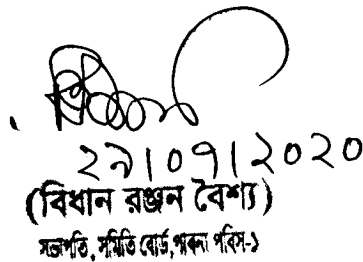 ২৯|০৭|২০২০
(বিধান রঞ্জন বৈশ্য)
সভাপতি, সমিতি বোর্ড, পাবনা পবিস-১